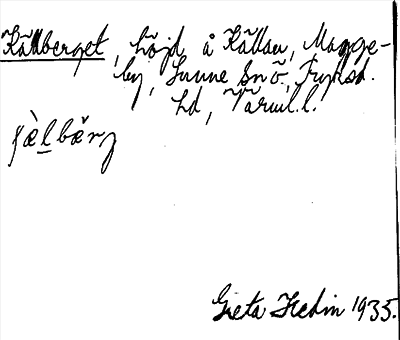 Källberget, höjd å Källan, Magge-
by, Sunne sn ö., Fryksd.
hd, Värml.l.
Greta Hedin 1935.